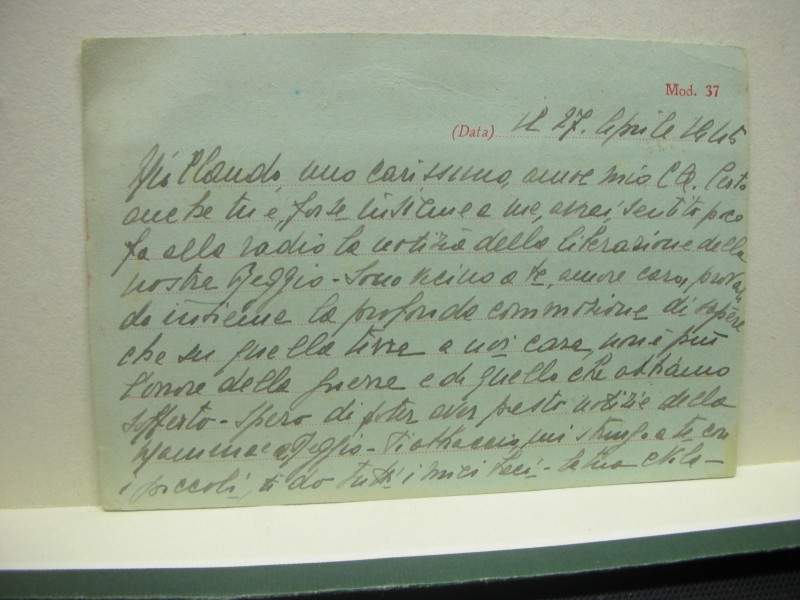 Mod. 37
(Data) il 27. Aprile 1945
Mio Claudo mio carissimo, amore mio Certo
anche tu e, forse insieme a me, avrai sentito poco
fa alla radio la notizia della liberazione della
nostra Reggio - Sono vicino a te, amore caro, provan
do insieme la profonda commozione di sapere
che su quella terra a noi cara, non è più
l'orrore della guerra e di quello che abbiamo
sofferto - Spero di poter aver presto notizie della
Mamma e Reggio - Ti abbraccio, mi stringo a te con
i piccoli, ti do tutti i miei baci - la tua